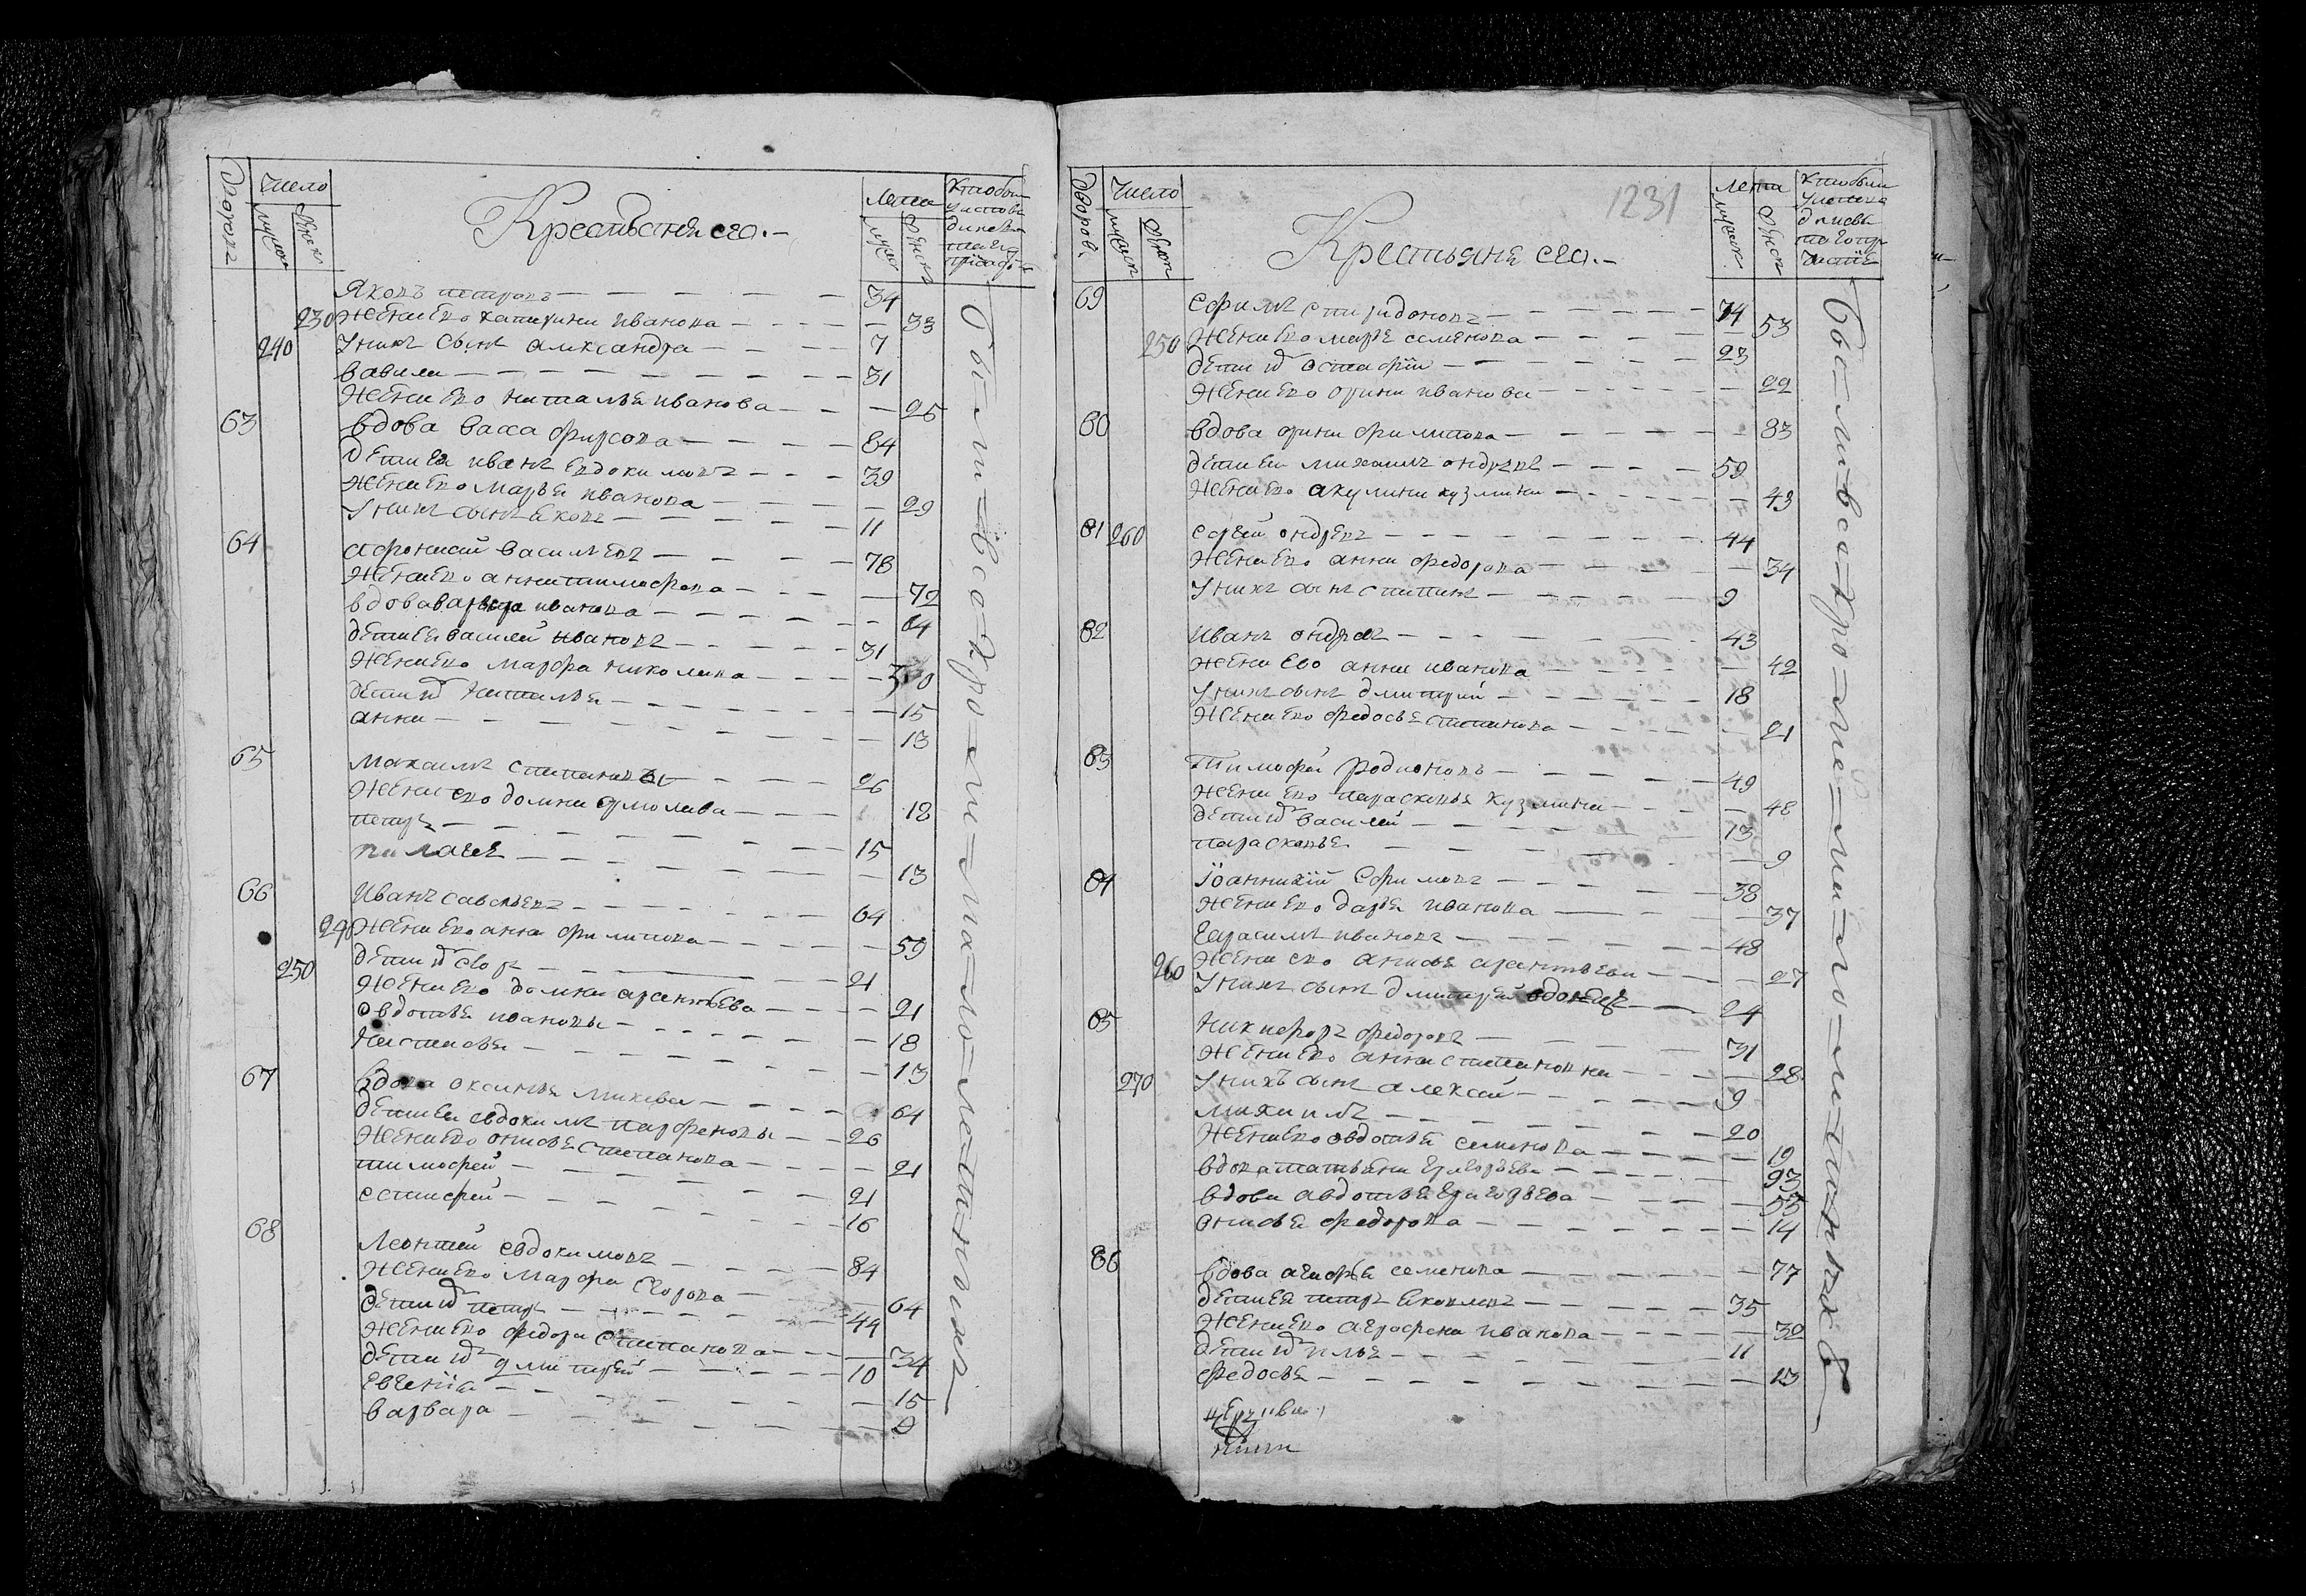 дворовъ
Число
мужск
женск
Крестьяня его.
Лета
мужск
женск
Яковъ петровъ 34
230 жена ево катирина иванова 33
240 у них сынъ александра 7
вавила 31
жена ево наталья иванова 25
63 вдова васса фирсова 64
дети ея иванъ евдокимовъ 39
жена ево марья иванова 29
у них сынъ яковъ 11
64 афонасий васильевъ 78
жена ево анна тимофева 72
вдова варвара иванова 64
дети ея василей ивановъ 31
жена ево марфа николаева 30
дети их наталья 15
анна 13
65 михаилъ степановъ 26
жена ево домна ермолаева 18
петръ 15
пилагея 13
66 Иванъ савельевъ 64
240 жена ево анна филипова 59
250 дети их егоръ 21
жена ево домна арсентьева 21
овдотья ивановы 18
настасья 13
67 вдова оксинья михеева 64
дети ея евдокимъ парфеновы 26
жена ево онисья степанова 21
тимофей 21
естифей 16
68 Леонтей евдокимовъ 84
жена ево марфа егорова 64
дети их петръ 44
жена ево федора степанова 34
дети их дмитрей 10
евгения 15
варвара 9
бы-ли-все-хро-ми-ми-ло-ме-ти-ныхъ
1231
дворов.
Число
мужск
женск
Крестьяня его.
лета
мужск
женск
69 ефимъ спиридоновъ 74
250 жена ево марья семенова 53
дети их остафiй 23
жена ево орина иванова 22
80 вдова орина филипова 83
дети ея михаилъ ондреевъ 59
жена ево акулина кузмина 43
81 260 сергей ондреевъ 44
жена ево анна федорова 34
у них сынъ степанъ 9
82 иванъ ондреевъ 43
жена ево анна иванова 42
у них сынъ дмитрий 18
жена ево федосья степанова 21
83 Тимофей родионовъ 49
жена ево парасковья кузмина 48
дети их василей 13
парасковья 9
84 Iоанникiй ефимовъ 38
жена ево дарья иванова 37
герасимъ ивановъ 48
жена ево анисья арентьева 27
260 у них сынъ дмитрей 24
85 Никифоръ федоровъ 31
жена ево анна степановна 28
270 у нихъ сынъ алексей 9
михаилъ 20
жена ево овдотья семенова 19
вдова татьяна григорьева 93
вдова авдотья григорьева 55
онисья федорова 14
86 вдова агафья семенова 77
дети ея петръ яковлевъ 35
жена ево аграфена иванова 32
дети их илья 11
федосья 13